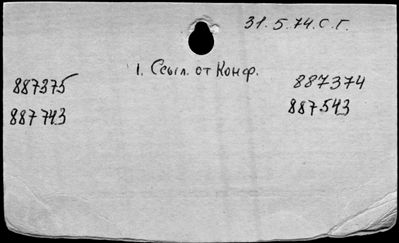 31.5.74.С.Г.
1. Ссыл. от Конф.
887375 887374
887743 887543